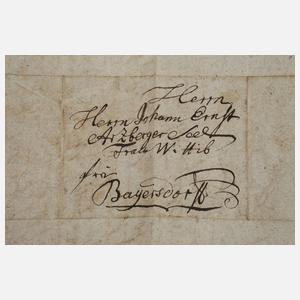 Herrn
Herrn Johann Ernst
Arzberger Seel
Frau Wittib
fra
Bayersdorff